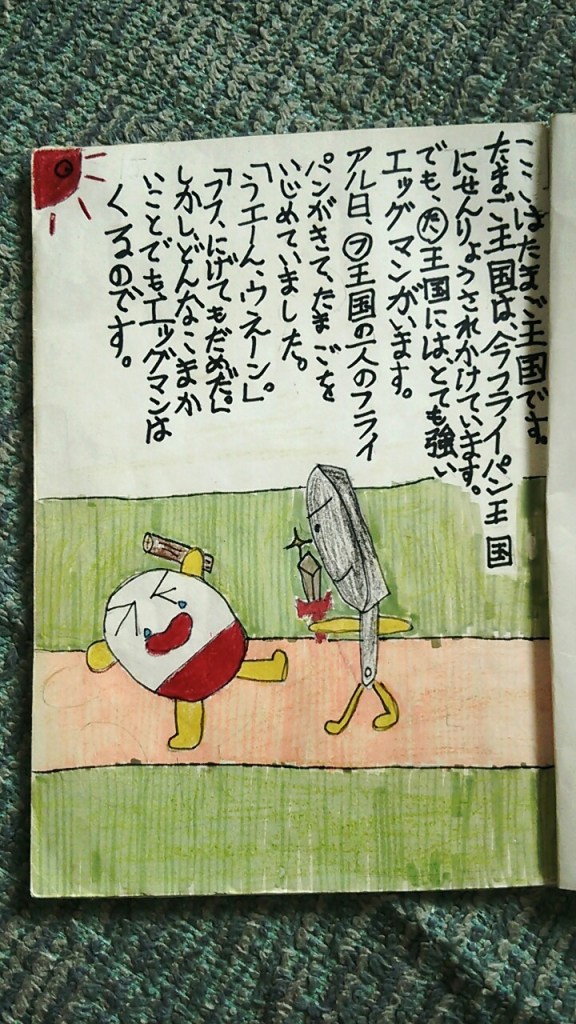 ここはたまご王国です。
たまご王国は、今フライパン王国
にせんりょうされかけています。
でも、㋟王国にはとても強い
エッグマンがいます。
アル日、㋫王国の一人のフライ
パンがきて、たまごを
いじめていました。
「うエーん、ウえーン。」
「フフ、にげてもだめだ。」
しかし、どんなこまか
いことでもエッグマンは
くるのです。